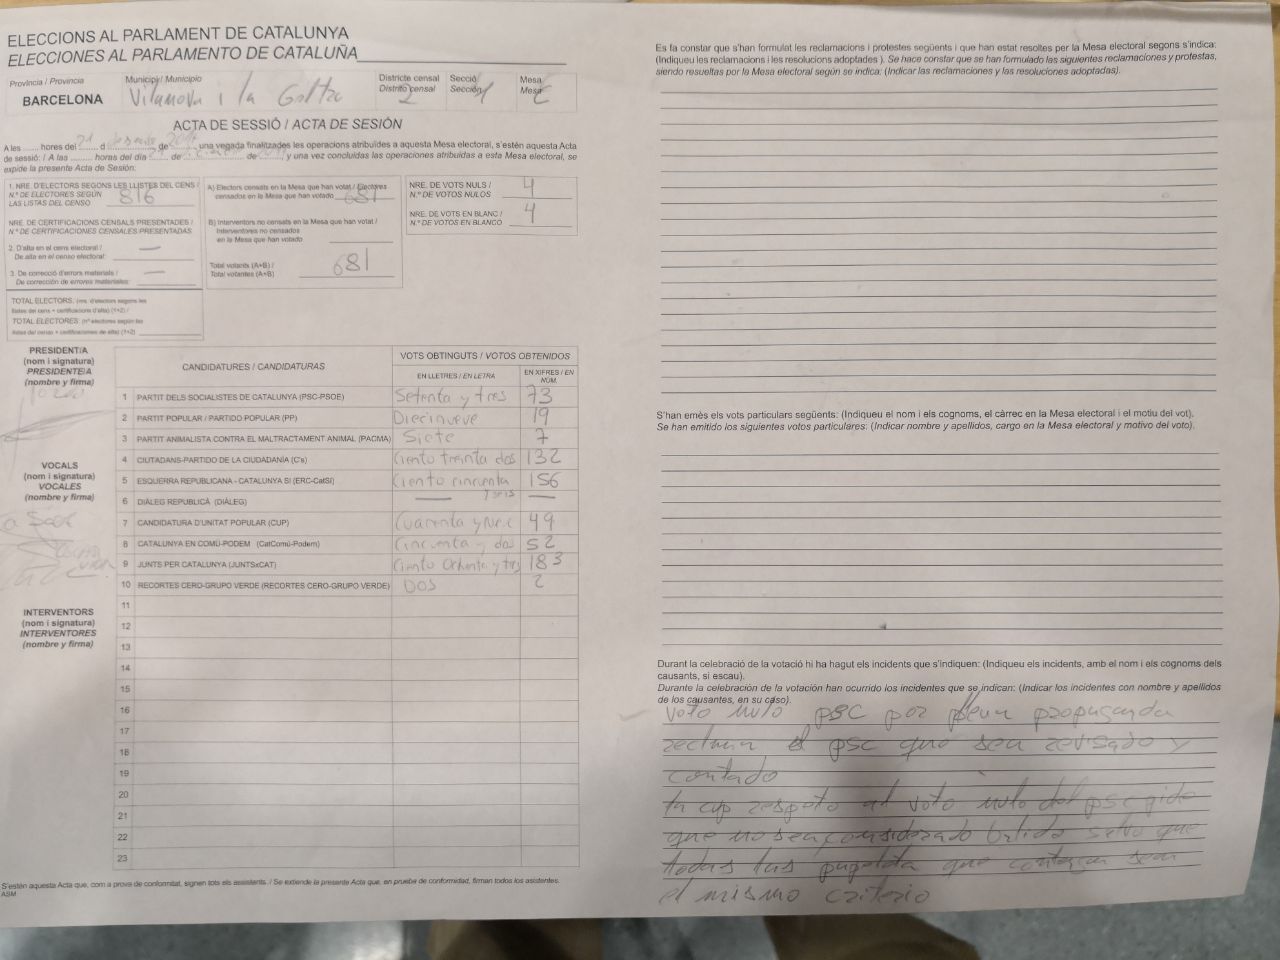 ELECCIONS AL PARLAMENT DE CATALUNYA
ELECCIONES AL PARLAMENTO DE CATALUÑA
Província / Provincia
BARCELONA
Municipi / Municipio
Vilanova i la Geltrú
Districte censal
Distrito censal
2
Secció
Sección
Mesa
Mesa
ACTA DE SESSIÓ / ACTA DE SESIÓN
A les ...... hores del 21 d de una vegada finalitzades les operacions atribuïdes a aquesta Mesa electoral, s'estén aquesta Acta
de sessió: / A las ........ horas del día de de y una vez concluidas las operaciones atribuidas a esta Mesa electoral, se
expide la presente Acta de Sesión:
1. NRE. D'ELECTORS SEGONS LES LLISTES DEL CENS /
N.º DE ELECTORES SEGÚN
LAS LISTAS DEL CENSO
816
NRE. DE CERTIFICACIONS CENSALS PRESENTADES /
N.º DE CERTIFICACIONES CENSALES PRESENTADAS:
2. D'alta en el cens electoral /
De alta en el censo electoral: —
3. De correcció d'errors materials /
De corrección de errores materiales: —
TOTAL ELECTORS: (nre. d'electors segons les
llistes del cens + certificacions d'alta) (1+2) /
TOTAL ELECTORES: (nº electores según las
listas del censo + certificaciones de alta) (1+2)
A) Electors censats en la Mesa que han votat / Electores
censados en la Mesa que han votado 681
B) Interventors no censats en la Mesa que han votat /
Interventores no censados
en la Mesa que han votado
Total votants (A+B) /
Total votantes (A+B)
681
NRE. DE VOTS NULS /
N.º DE VOTOS NULOS
4
NRE. DE VOTS EN BLANC /
N.º DE VOTOS EN BLANCO
4
PRESIDENT/A
(nom i signatura)
PRESIDENTE/A
(nombre y firma)
VOCALS
(nom i signatura)
VOCALES
(nombre y firma)
INTERVENTORS
(nom i signatura)
INTERVENTORES
(nombre y firma)
CANDIDATURES / CANDIDATURAS
VOTS OBTINGUTS / VOTOS OBTENIDOS
EN LLETRES / EN LETRA
EN XIFRES / EN NÚM.
1 PARTIT DELS SOCIALISTES DE CATALUNYA (PSC-PSOE) Setenta y tres 73
2 PARTIT POPULAR / PARTIDO POPULAR (PP) Diecinueve 19
3 PARTIT ANIMALISTA CONTRA EL MALTRACTAMENT ANIMAL (PACMA) Siete 7
4 CIUTADANS-PARTIDO DE LA CIUDADANÍA (C's) Ciento treinta dos 132
5 ESQUERRA REPUBLICANA - CATALUNYA SÍ (ERC-CatSí) Ciento cincuenta y seis 156
6 DIÀLEG REPUBLICÀ (DIÀLEG) — —
7 CANDIDATURA D'UNITAT POPULAR (CUP) Cuarenta y 49
8 CATALUNYA EN COMÚ-PODEM (CatComú-Podem) Cincuenta y dos 52
9 JUNTS PER CATALUNYA (JUNTSxCAT) Ciento Ochenta y tres 183
10 RECORTES CERO-GRUPO VERDE (RECORTES CERO-GRUPO VERDE) DOS 2
11
12
13
14
15
16
17
18
19
20
21
22
23
S'estén aquesta Acta que, com a prova de conformitat, signen tots els assistents. / Se extiende la presente Acta que, en prueba de conformidad, firman todos los asistentes.
ASM
Es fa constar que s'han formulat les reclamacions i protestes següents i que han estat resoltes per la Mesa electoral segons s'indica:
(Indiqueu les reclamacions i les resolucions adoptades ). Se hace constar que se han formulado las siguientes reclamaciones y protestas,
siendo resueltas por la Mesa electoral según se indica: (Indicar las reclamaciones y las resoluciones adoptadas).
S'han emès els vots particulars següents: (Indiqueu el nom i els cognoms, el càrrec en la Mesa electoral i el motiu del vot).
Se han emitido los siguientes votos particulares: (Indicar nombre y apellidos, cargo en la Mesa electoral y motivo del voto).
Durant la celebració de la votació hi ha hagut els incidents que s'indiquen: (Indiqueu els incidents, amb el nom i els cognoms dels
causants, si escau).
Durante la celebración de la votación han ocurrido los incidentes que se indican: (Indicar los incidentes con nombre y apellidos
de los causantes, en su caso).
Voto nulo psc por propaganda
el psc que sea revisado y
contado
la cup respeto al voto nulo del psc pide
que no sea considerado balido salvo que
todas las que contegan sean
el mismo criterio